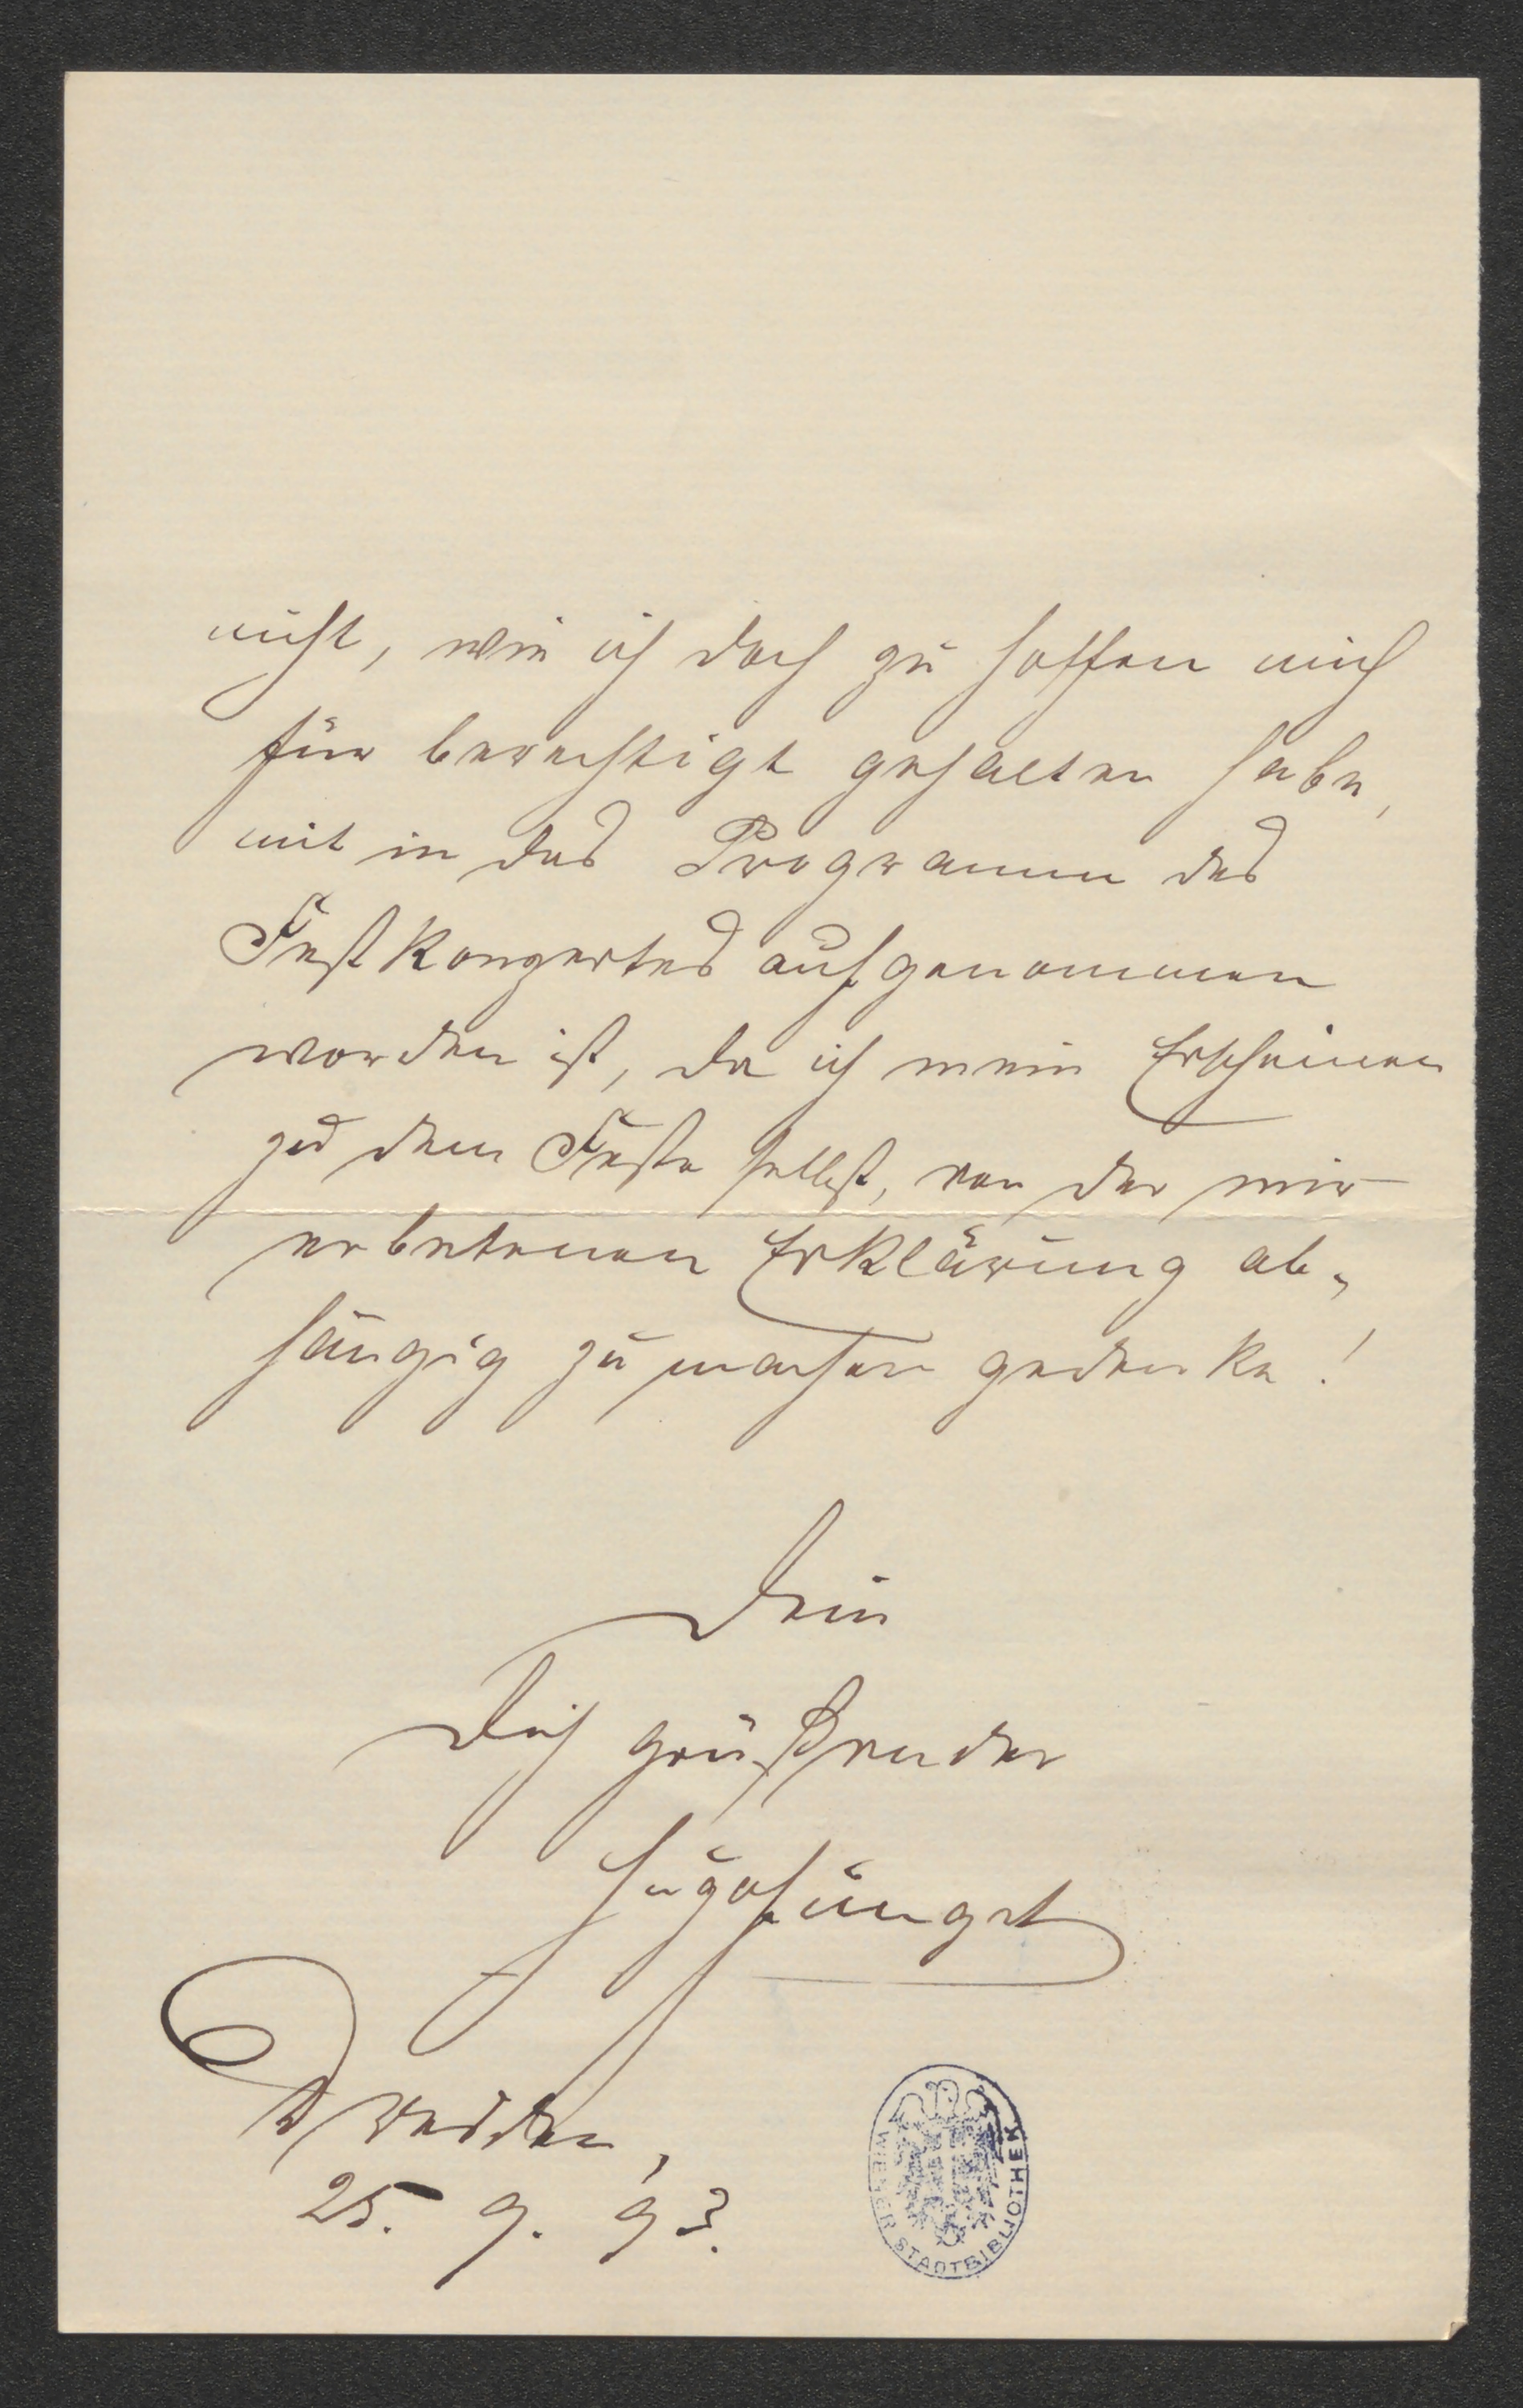 nicht, wie ich doch zu hoffen mich
für berechtigt gehalten habe,
mit in das Programm des
Festkonzertes aufgenommen
worden ist, da ich mein Erscheinen
zu dem Feste selbst, von der mir
erbetenen Erklärung ab-
hängig zu machen gedenke!
Dein
Dich grüßender
Hugo Jüngst
Dresden,
25. 9. 93.
WIENER STADTBIBLIOTHEK